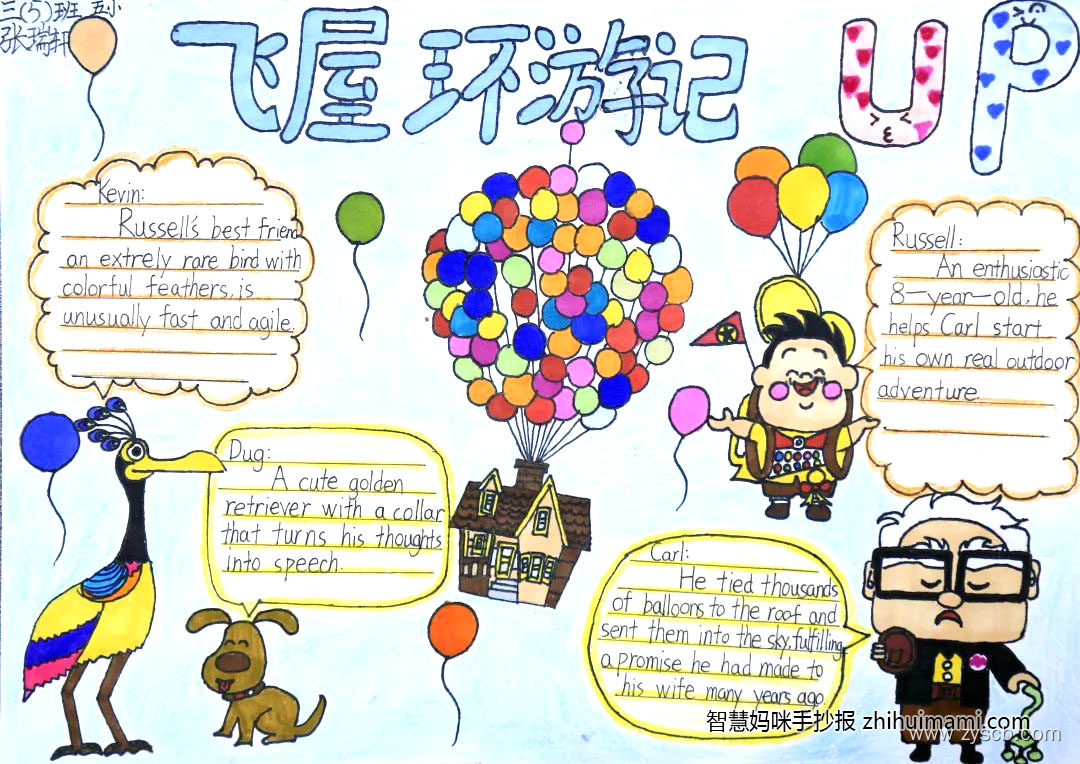 三(5)班 五小
张瑞轩
飞屋环游记
UP
Kevin:
Russell's best friend
an extrely rare bird with
colorful feathers, is
unusually fast and agile.
Russell:
An enthusiastic
8-year-old, he
helps Carl start
his own real outdoor
adventure.
Dug:
A cute golden
retriever with a collar
that turns his thoughts
into speech.
Carl:
He tied thousands
of balloons to the roof and
sent them into the sky, fulfilling
a promise he had made to
his wife many years ago.
智慧妈咪手抄报 zhihuimami.com
www.zyscb.com